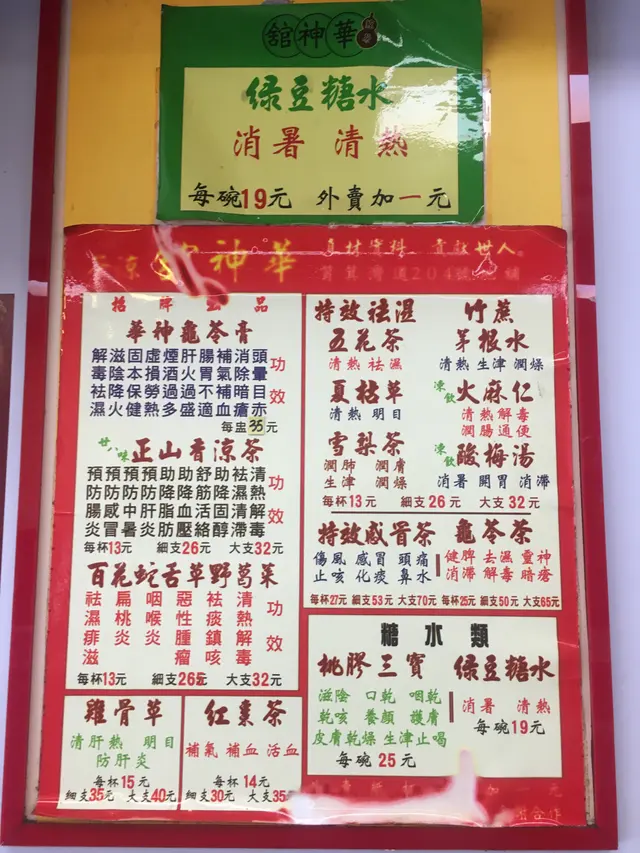 華神舘
綠豆糖水
消暑 清熱
每碗19元 外賣加一元
神華
真材實料 貢獻世人
招牌出品
華神龜苓膏
功效
頭暈目赤
消除暗瘡
補氣補血
腸胃不適
肝火過盛
煙酒過多
虛損勞熱
固本保健
滋陰降火
解毒袪濕
每盅35元
廿八味正山香涼茶
功效
清熱解毒
袪濕清滯
助降固醇
舒筋活絡
助降血壓
助降脂肪
預防肝炎
預防中暑
預防感冒
預防腸炎
每杯13元 細支26元 大支32元
百花蛇舌草野葛菜
功效
清熱解毒
袪痰鎮咳
惡性腫瘤
咽喉炎
扁桃炎
袪濕痱滋
每杯13元 細支26元 大支32元
雞骨草
清肝熱 明目
防肝炎
每杯15元
細支35元 大支40元
紅棗茶
補氣 補血 活血
每杯14元
細支30元 大支35元
特效祛濕
五花茶
清熱 祛濕
竹蔗
茅根水
清熱 生津 潤燥
夏枯草
清熱 明目
凍飲 火麻仁
清熱解毒
潤腸通便
雪梨茶
潤肺 潤膚
生津 潤燥
凍飲 酸梅湯
消暑 開胃 消滯
每杯13元 細支26元 大支32元
特效感冒茶
傷風 感冒 頭痛
止咳 化痰 鼻水
每杯27元 細支53元 大支70元
龜苓茶
健脾 去濕 靈神
消滯 解毒 暗瘡
每杯25元 細支50元 大支65元
糖水類
桃膠三寶
滋陰 口乾 咽乾
乾咳 養顏 護膚
皮膚乾燥 生津止喝
每碗25元
綠豆糖水
消暑 清熱
每碗19元
加一元